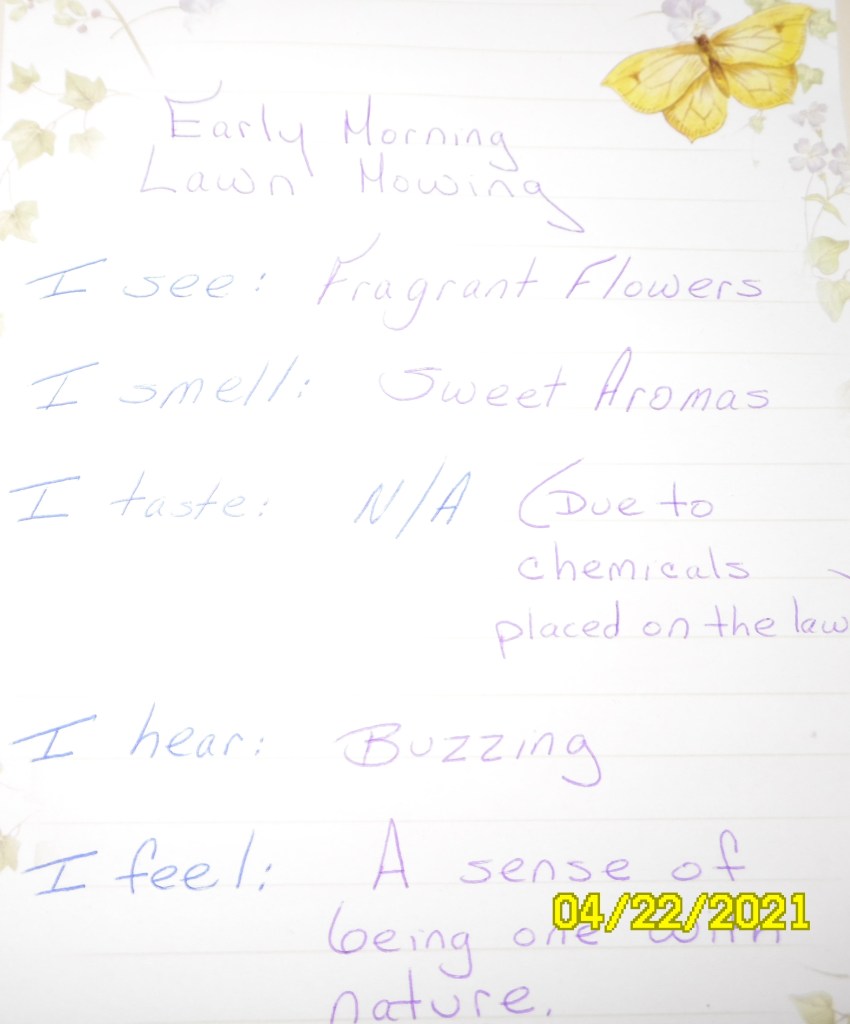 Early Morning
Lawn Mowing
I see: Fragrant Flowers
I smell: Sweet Aromas
I taste: N/A (Due to
chemicals
placed on the law
I hear: Buzzing
I feel: A sense of
being one with
04/22/2021
nature.